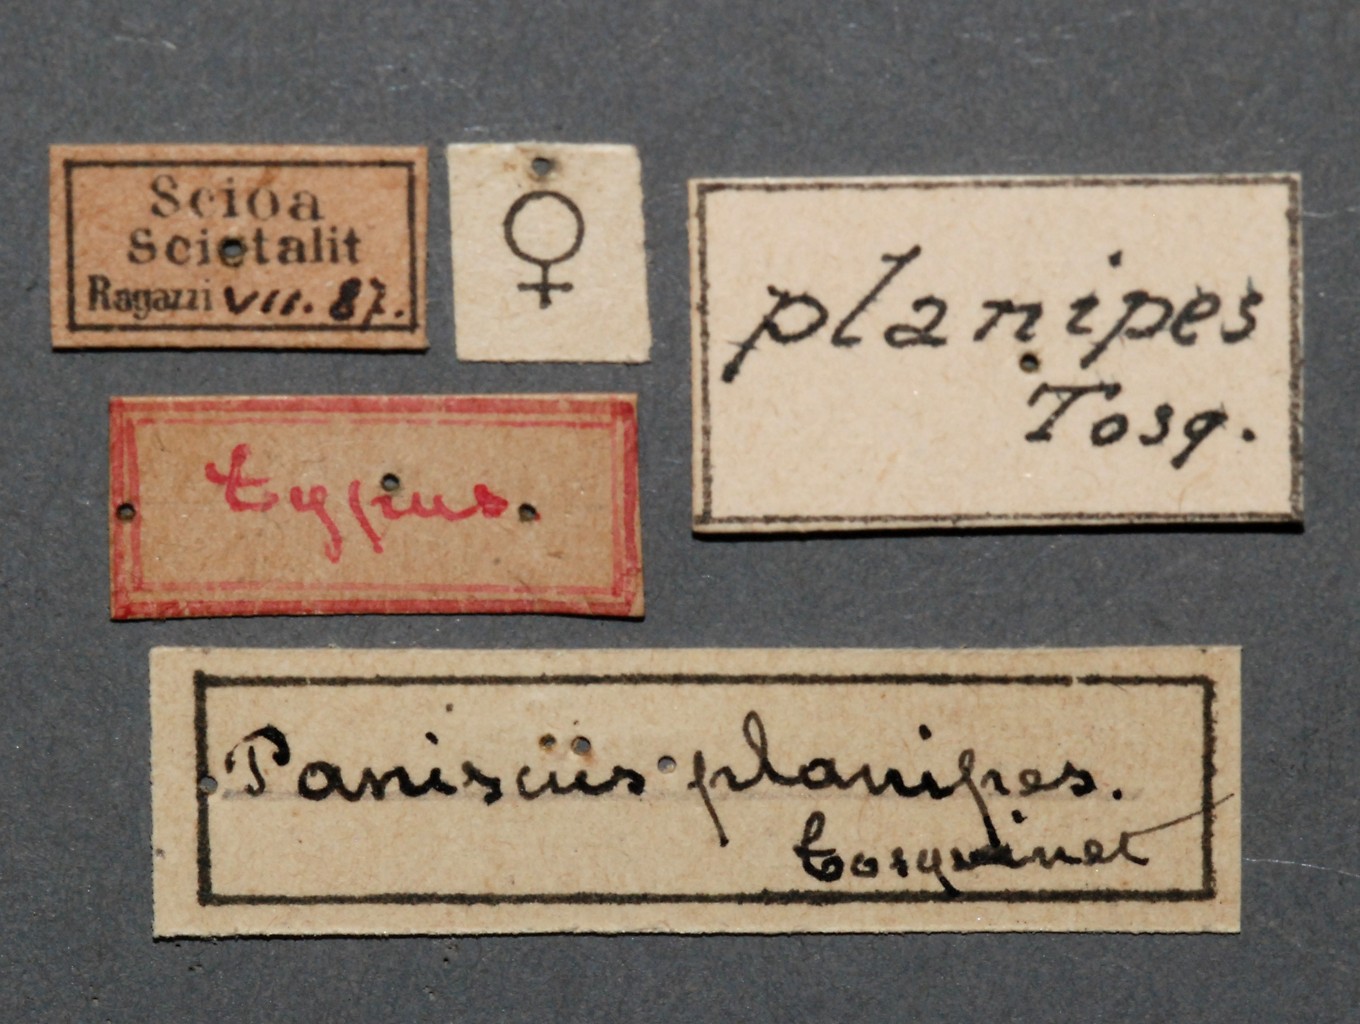 Scioa
Scietalit
Ragazzi VII. 87.
♀
planipes
Tosq.
typus.
Paniscus planipes.
Tosquinet